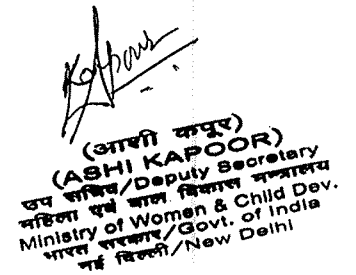 Kapoor
(आशी कपूर)
(ASHI KAPOOR)
उप सचिव/Deputy Secretary
महिला एवं बाल विकास मन्त्रालय
Ministry of Women & Child Dev.
भारत सरकार/Govt. of India
नई दिल्ली/New Delhi